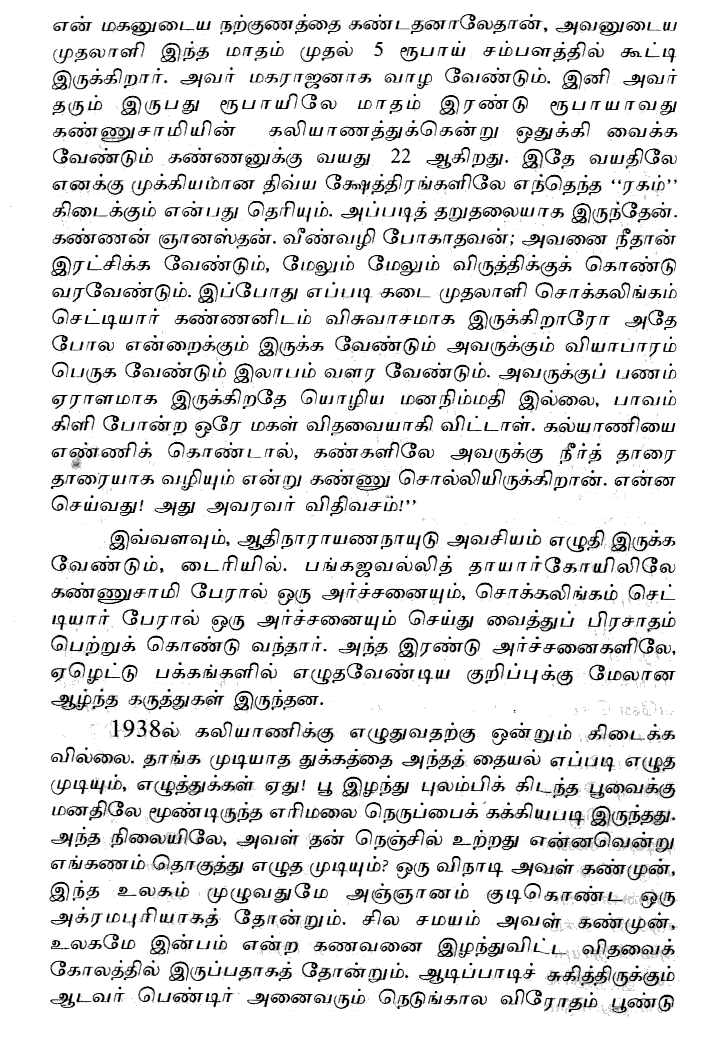 என் மகனுடைய நற்குணத்தை கண்டதனாலேதான், அவனுடைய
முதலாளி இந்த மாதம் முதல் 5 ரூபாய் சம்பளத்தில் கூட்டி
இருக்கிறார். அவர் மகராஜனாக வாழ வேண்டும். இனி அவர்
தரும் இருபது ரூபாயிலே மாதம் இரண்டு ரூபாயாவது
கண்ணுசாமியின் கலியாணத்துக்கென்று ஒதுக்கி வைக்க
வேண்டும் கண்ணனுக்கு வயது 22 ஆகிறது. இதே வயதிலே
எனக்கு முக்கியமான திவ்ய க்ஷேத்திரங்களிலே எந்தெந்த “ரகம்”
கிடைக்கும் என்பது தெரியும். அப்படித் தறுதலையாக இருந்தேன்.
கண்ணன் ஞானஸ்தன். வீண்வழி போகாதவன்; அவனை நீதான்
இரட்சிக்க வேண்டும், மேலும் மேலும் விருத்திக்குக் கொண்டு
வரவேண்டும். இப்போது எப்படி கடை முதலாளி சொக்கலிங்கம்
செட்டியார் கண்ணனிடம் விசுவாசமாக இருக்கிறாரோ அதே
போல என்றைக்கும் இருக்க வேண்டும் அவருக்கும் வியாபாரம்
பெருக வேண்டும் இலாபம் வளர வேண்டும். அவருக்குப் பணம்
ஏராளமாக இருக்கிறதே யொழிய மனநிம்மதி இல்லை, பாவம்
கிளி போன்ற ஒரே மகள் விதவையாகி விட்டாள். கல்யாணியை
எண்ணிக் கொண்டால், கண்களிலே அவருக்கு நீர்த் தாரை
தாரையாக வழியும் என்று கண்ணு சொல்லியிருக்கிறான். என்ன
செய்வது! அது அவரவர் விதிவசம்!”
இவ்வளவும், ஆதிநாராயணநாயுடு அவசியம் எழுதி இருக்க
வேண்டும், டைரியில். பங்கஜவல்லித் தாயார்கோயிலிலே
கண்ணுசாமி பேரால் ஒரு அர்ச்சனையும், சொக்கலிங்கம் செட்
டியார் பேரால் ஒரு அர்ச்சனையும் செய்து வைத்துப் பிரசாதம்
பெற்றுக் கொண்டு வந்தார். அந்த இரண்டு அர்ச்சனைகளிலே,
ஏழெட்டு பக்கங்களில் எழுதவேண்டிய குறிப்புக்கு மேலான
ஆழ்ந்த கருத்துகள் இருந்தன.
1938ல் கலியாணிக்கு எழுதுவதற்கு ஒன்றும் கிடைக்க
வில்லை. தாங்க முடியாத துக்கத்தை அந்தத் தையல் எப்படி எழுத
முடியும், எழுத்துக்கள் ஏது! பூ இழந்து புலம்பிக் கிடந்த பூவைக்கு
மனதிலே மூண்டிருந்த எரிமலை நெருப்பைக் கக்கியபடி இருந்தது.
அந்த நிலையிலே, அவள் தன் நெஞ்சில் உற்றது என்னவென்று
எங்கணம் தொகுத்து எழுத முடியும்? ஒரு விநாடி அவள் கண்முன்,
இந்த உலகம் முழுவதுமே அஞ்ஞானம் குடிகொண்ட ஒரு
அக்ரமபுரியாகத் தோன்றும். சில சமயம் அவள் கண்முன்,
உலகமே இன்பம் என்ற கணவனை இழந்துவிட்ட விதவைக்
கோலத்தில் இருப்பதாகத் தோன்றும். ஆடிப்பாடிச் சுகித்திருக்கும்
ஆடவர் பெண்டிர் அனைவரும் நெடுங்கால விரோதம் பூண்டு